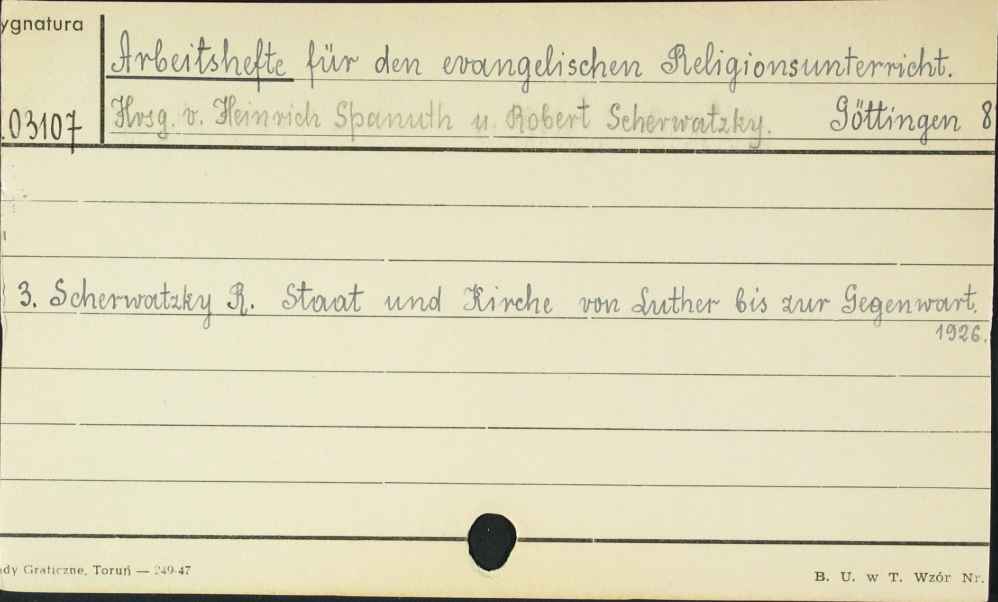 ygnatura
Arbeitshefte für den evangelischen Religionsunterricht.
.03107 Hrsg. v. Heinrich Spanuth u. Robert Scherwatzky. Göttingen 8
3. Scherwatzky R. Staat und Kirche von Luther bis zur Gegenwart.
1926.
ady Graficzne, Toruń — 249-47
B. U. w T. Wzór Nr.